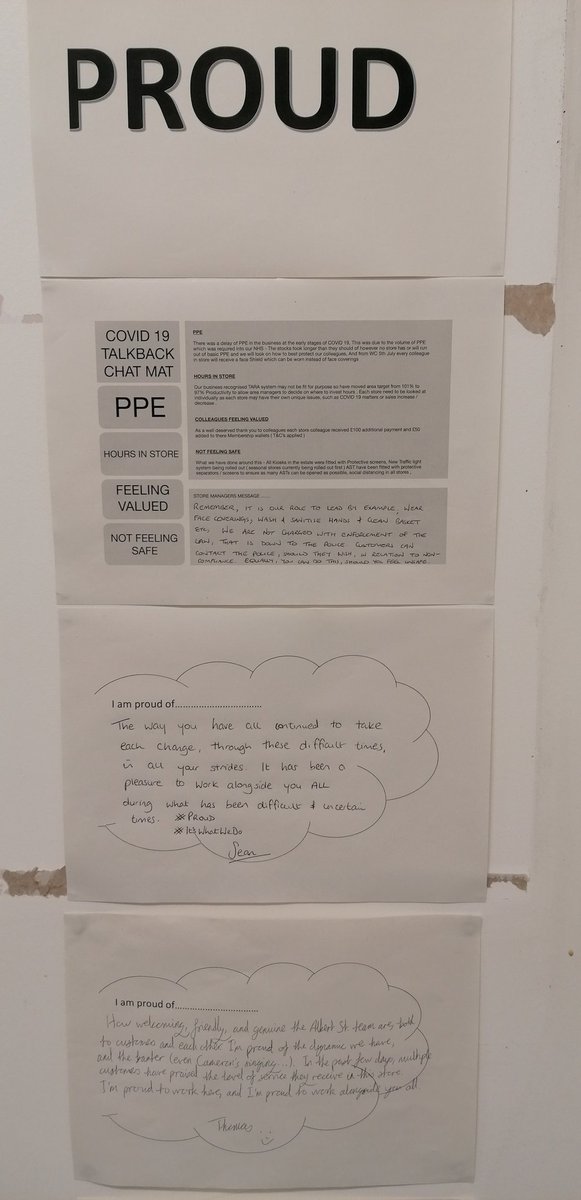 PROUD
COVID 19
TALKBACK
CHAT MAT
PPE
HOURS IN STORE
FEELING
VALUED
NOT FEELING
SAFE
PPE
There was a delay of PPE in the business at the early stages of COVID 19. This was due to the volume of PPE
which was required into our NHS - The stocks took longer than they should of however no store has or will run
out of basic PPE and we will look on how to best protect our colleagues. And from WC 5th July every colleague
in store will receive a face Shield which can be worn instead of face coverings
HOURS IN STORE
Our business recognised TARA system may not be fit for purpose so have moved area target from 101% to
97% Productivity to allow area managers to decide on where to invest hours. Each store need to be looked at
individually as each store may have their own unique issues, such as COVID 19 matters or sales increase /
decrease.
COLLEAGUES FEELING VALUED
As a well deserved thank you to colleagues each store colleague received £100 additional payment and £50
added to there Membership wallets ( T&C's applied )
NOT FEELING SAFE
What we have done around this - All Kiosks in the estate were fitted with Protective screens, New Traffic light
system being rolled out ( seasonal stores currently being rolled out first ) AST have been fitted with protective
separators / screens to ensure as many ASTs can be opened as possible, social distancing in all stores.
STORE MANAGERS MESSAGE ......
REMEMBER, IT IS OUR ROLE TO LEAD BY EXAMPLE, WEAR
FACE COVERINGS, WASH & SANITISE HANDS & CLEAN BASKET
ETC, WE ARE NOT CHARGED WITH ENFORCEMENT OF THE
LAW, THAT IS DOWN TO THE POLICE. CUSTOMERS CAN
CONTACT THE POLICE, SHOULD THEY WISH, IN RELATION TO NON-
COMPLIANCE. EQUALLY, YOU CAN DO THIS, SHOULD YOU FEEL UNSAFE.
I am proud of................................
The way you have all continued to take
each change, through these difficult times,
in all your strides. It has been a
pleasure to work alongside you ALL
during what has been difficult & uncertain
times. #PROUD
#It'sWhatWeDo
Sean
I am proud of................................
How welcoming, friendly, and genuine the Albert St team are, both
to customers and each other. I'm proud of the dynamic we have,
and the banter (even Cameron's singing...). In the past few days, multiple
customers have praised the level of service they receive in this store.
I'm proud to work here, and I'm proud to work alongside you all.
Thomas :)